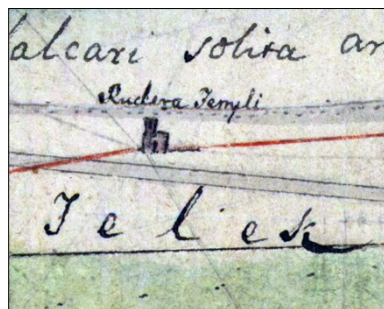 alcari solita ar
Rudera Templi
Telek